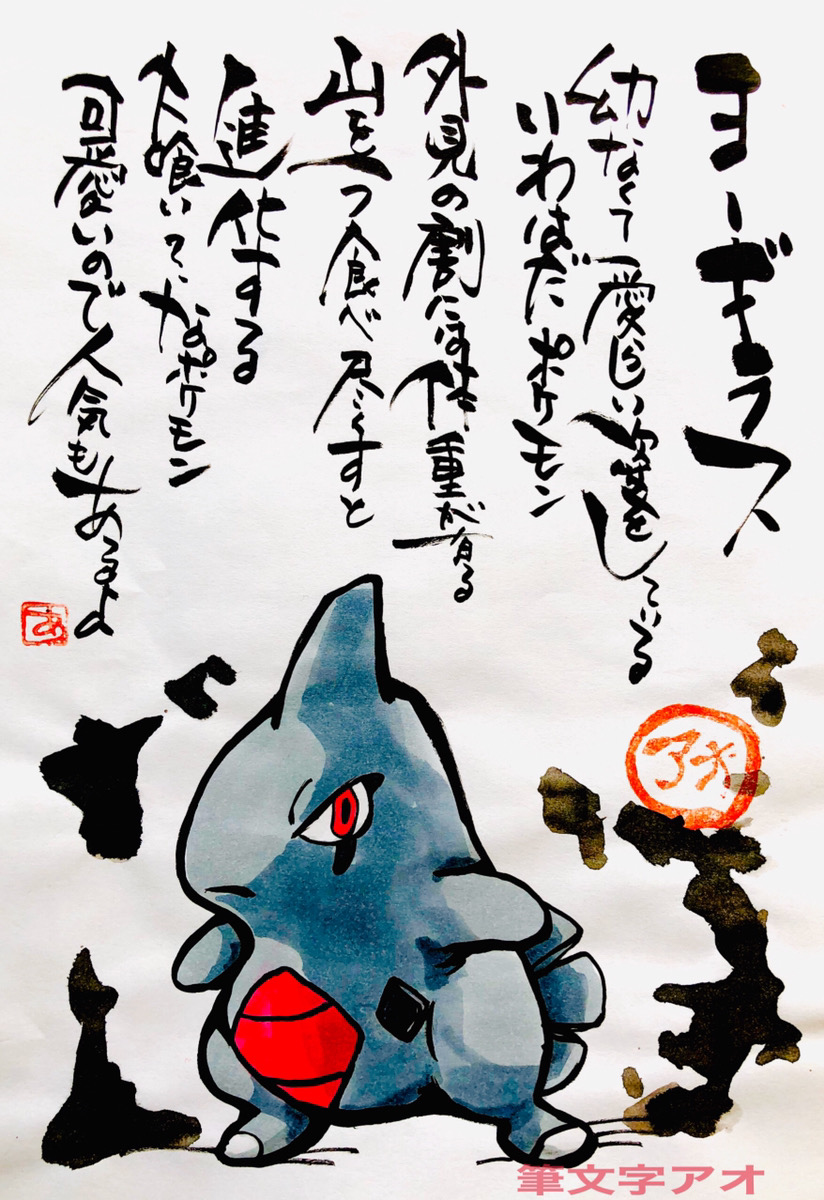 ヨーギラス
幼なくて愛らしい姿をしている
いわはだポケモン
外見の割には体重が有る
山を一つ食べ尽くすと
進化する
大喰い なポケモン
可愛いので人気もあるよ
あ
アオ
筆文字アオ